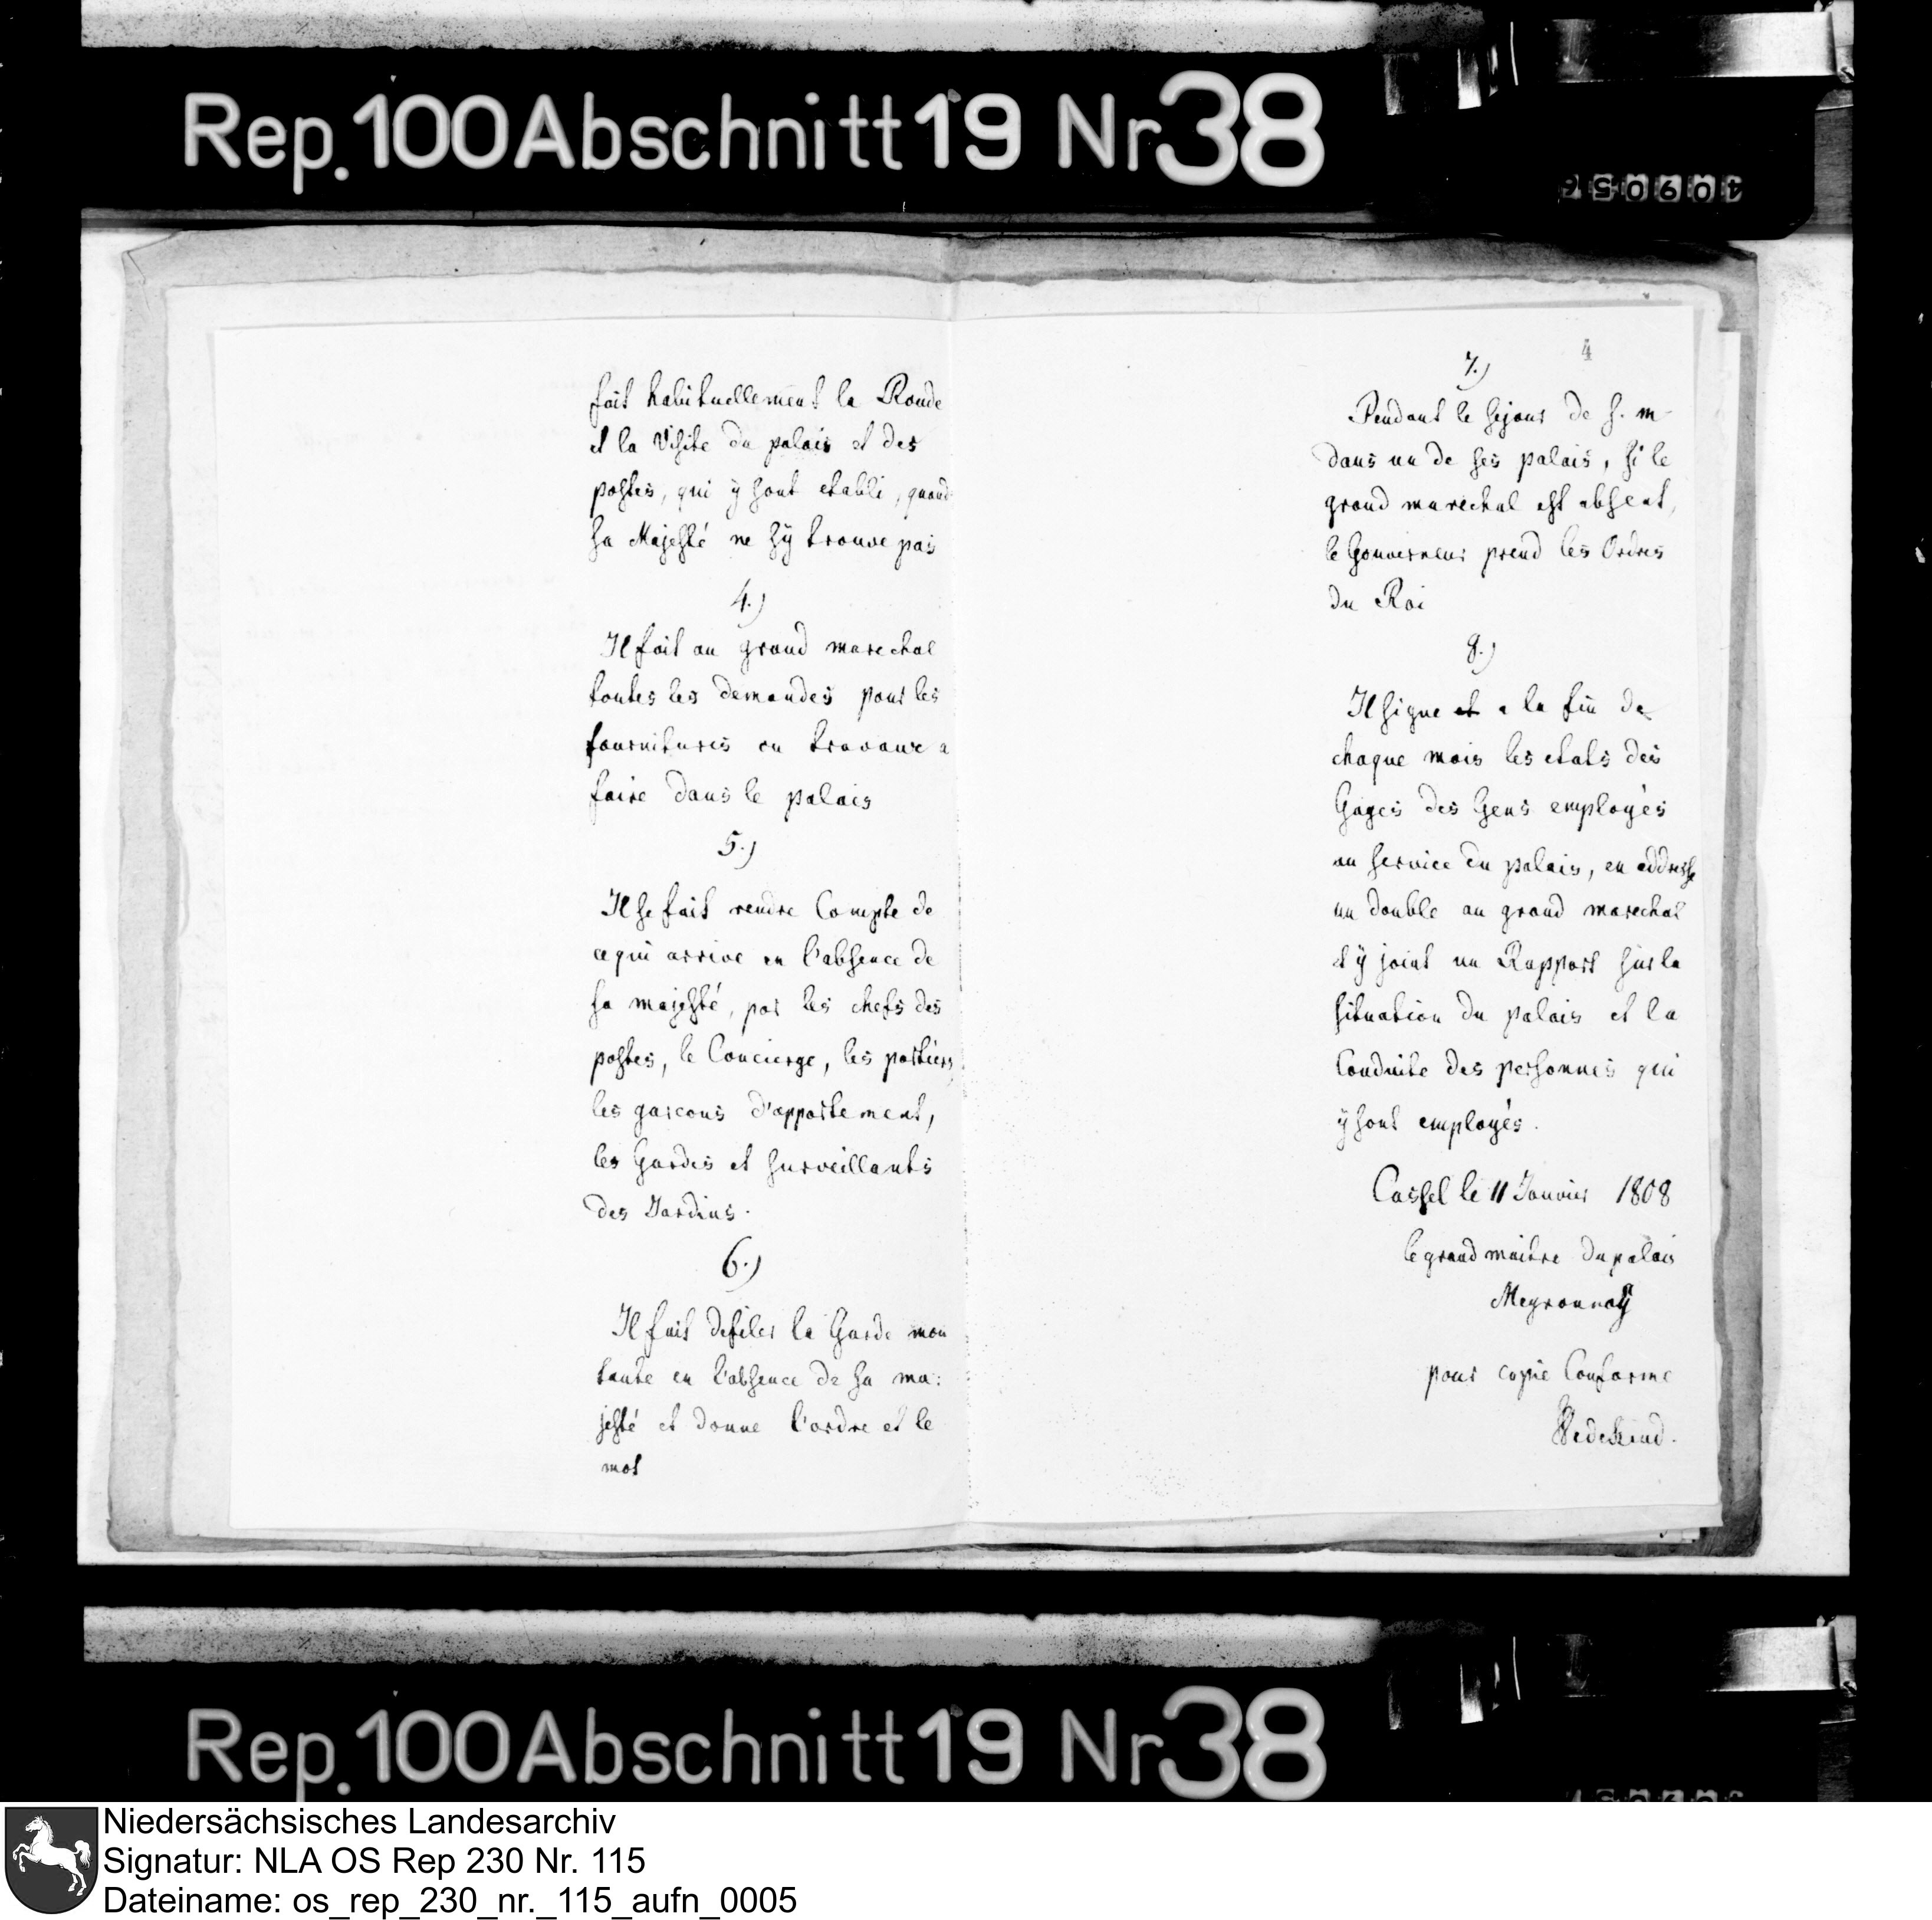 Rep.100Abschnitt19 Nr38
409056
fait habituellement la Ronde
et la Visite du palais et des
postes, qui ÿ sont etabli, quand
sa Majesté ne sÿ trouve pas
4.)
Il fait au grand marechal
toutes les demandes pour les
fournitures ou travaux a
faire dans le palais
5.)
Il se fait rendre Compte de
ce qui arrive en l'absence de
sa majesté, par les chefs des
postes, le Concierge, les portiers
les garcons d'appartement,
les Gardes et surveillants
des Jardins.
6.)
Il fait defiler la Garde mon
tante en l'absence de sa ma:
jesté et donne l'ordre et le
mot
4
7.)
Pendant le sejour de S. m
dans un de ses palais, si le
grand marechal est absent,
le Gouverneur prend les Ordres
du Roi
8.)
Il signe et a la fin de
chaque mois les etats des
Gages des Gens employés
au service du palais, en addresse
un double au grand marechal
et ÿ joint un Rapport sur la
situation du palais et la
Conduite des personnes qui
ÿ sont employés.
Cassel le 11 Janvier 1808
le grand maitre du palais
Meyronnaÿ
pour copie Conforme
Wedekind.
Rep.100Abschnitt19 Nr38
Niedersächsisches Landesarchiv
Signatur: NLA OS Rep 230 Nr. 115
Dateiname: os_rep_230_nr._115_aufn_0005